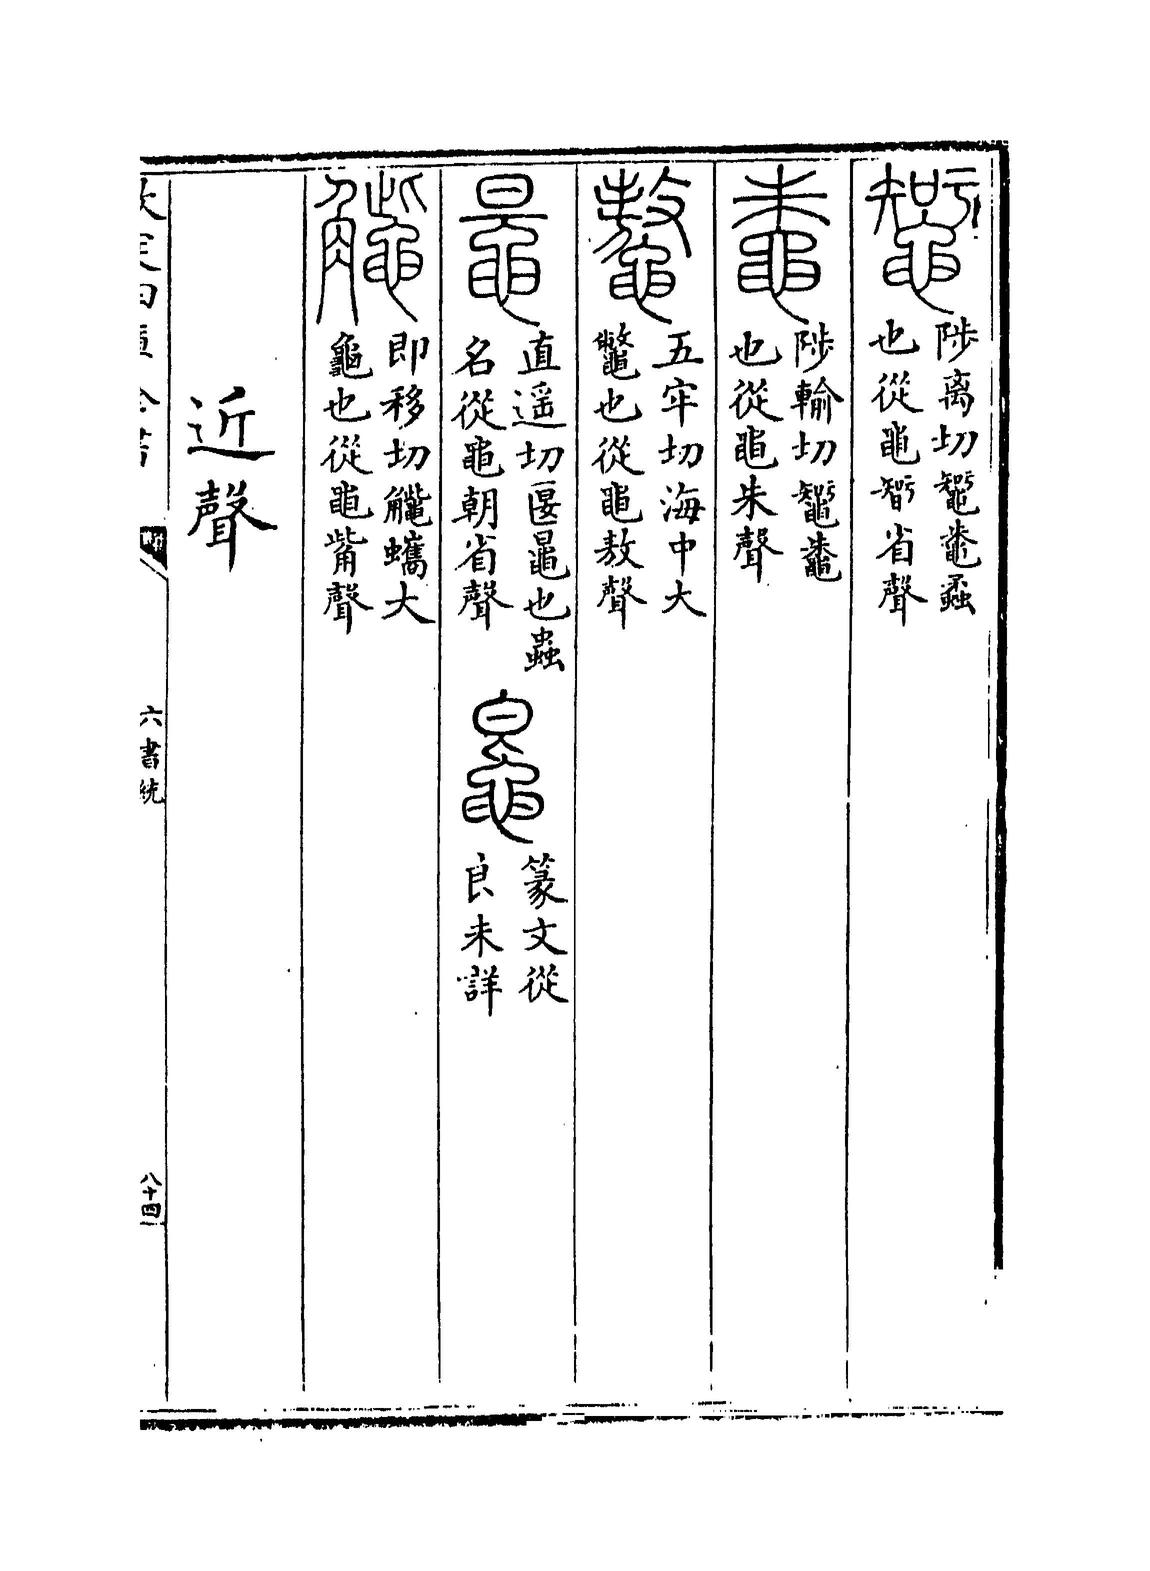 陟离切𪓿鼄蟊
也從黽智省聲
陟輸切𪓿鼄
也從黽朱聲
五牢切海中大
鼈也從黽敖聲
直遥切匽鼂也蟲
名從黽朝省聲
篆文從
良未詳
即移切蠵大
龜也從黽觜聲
近聲
欽定四庫全書
六書統
八十四